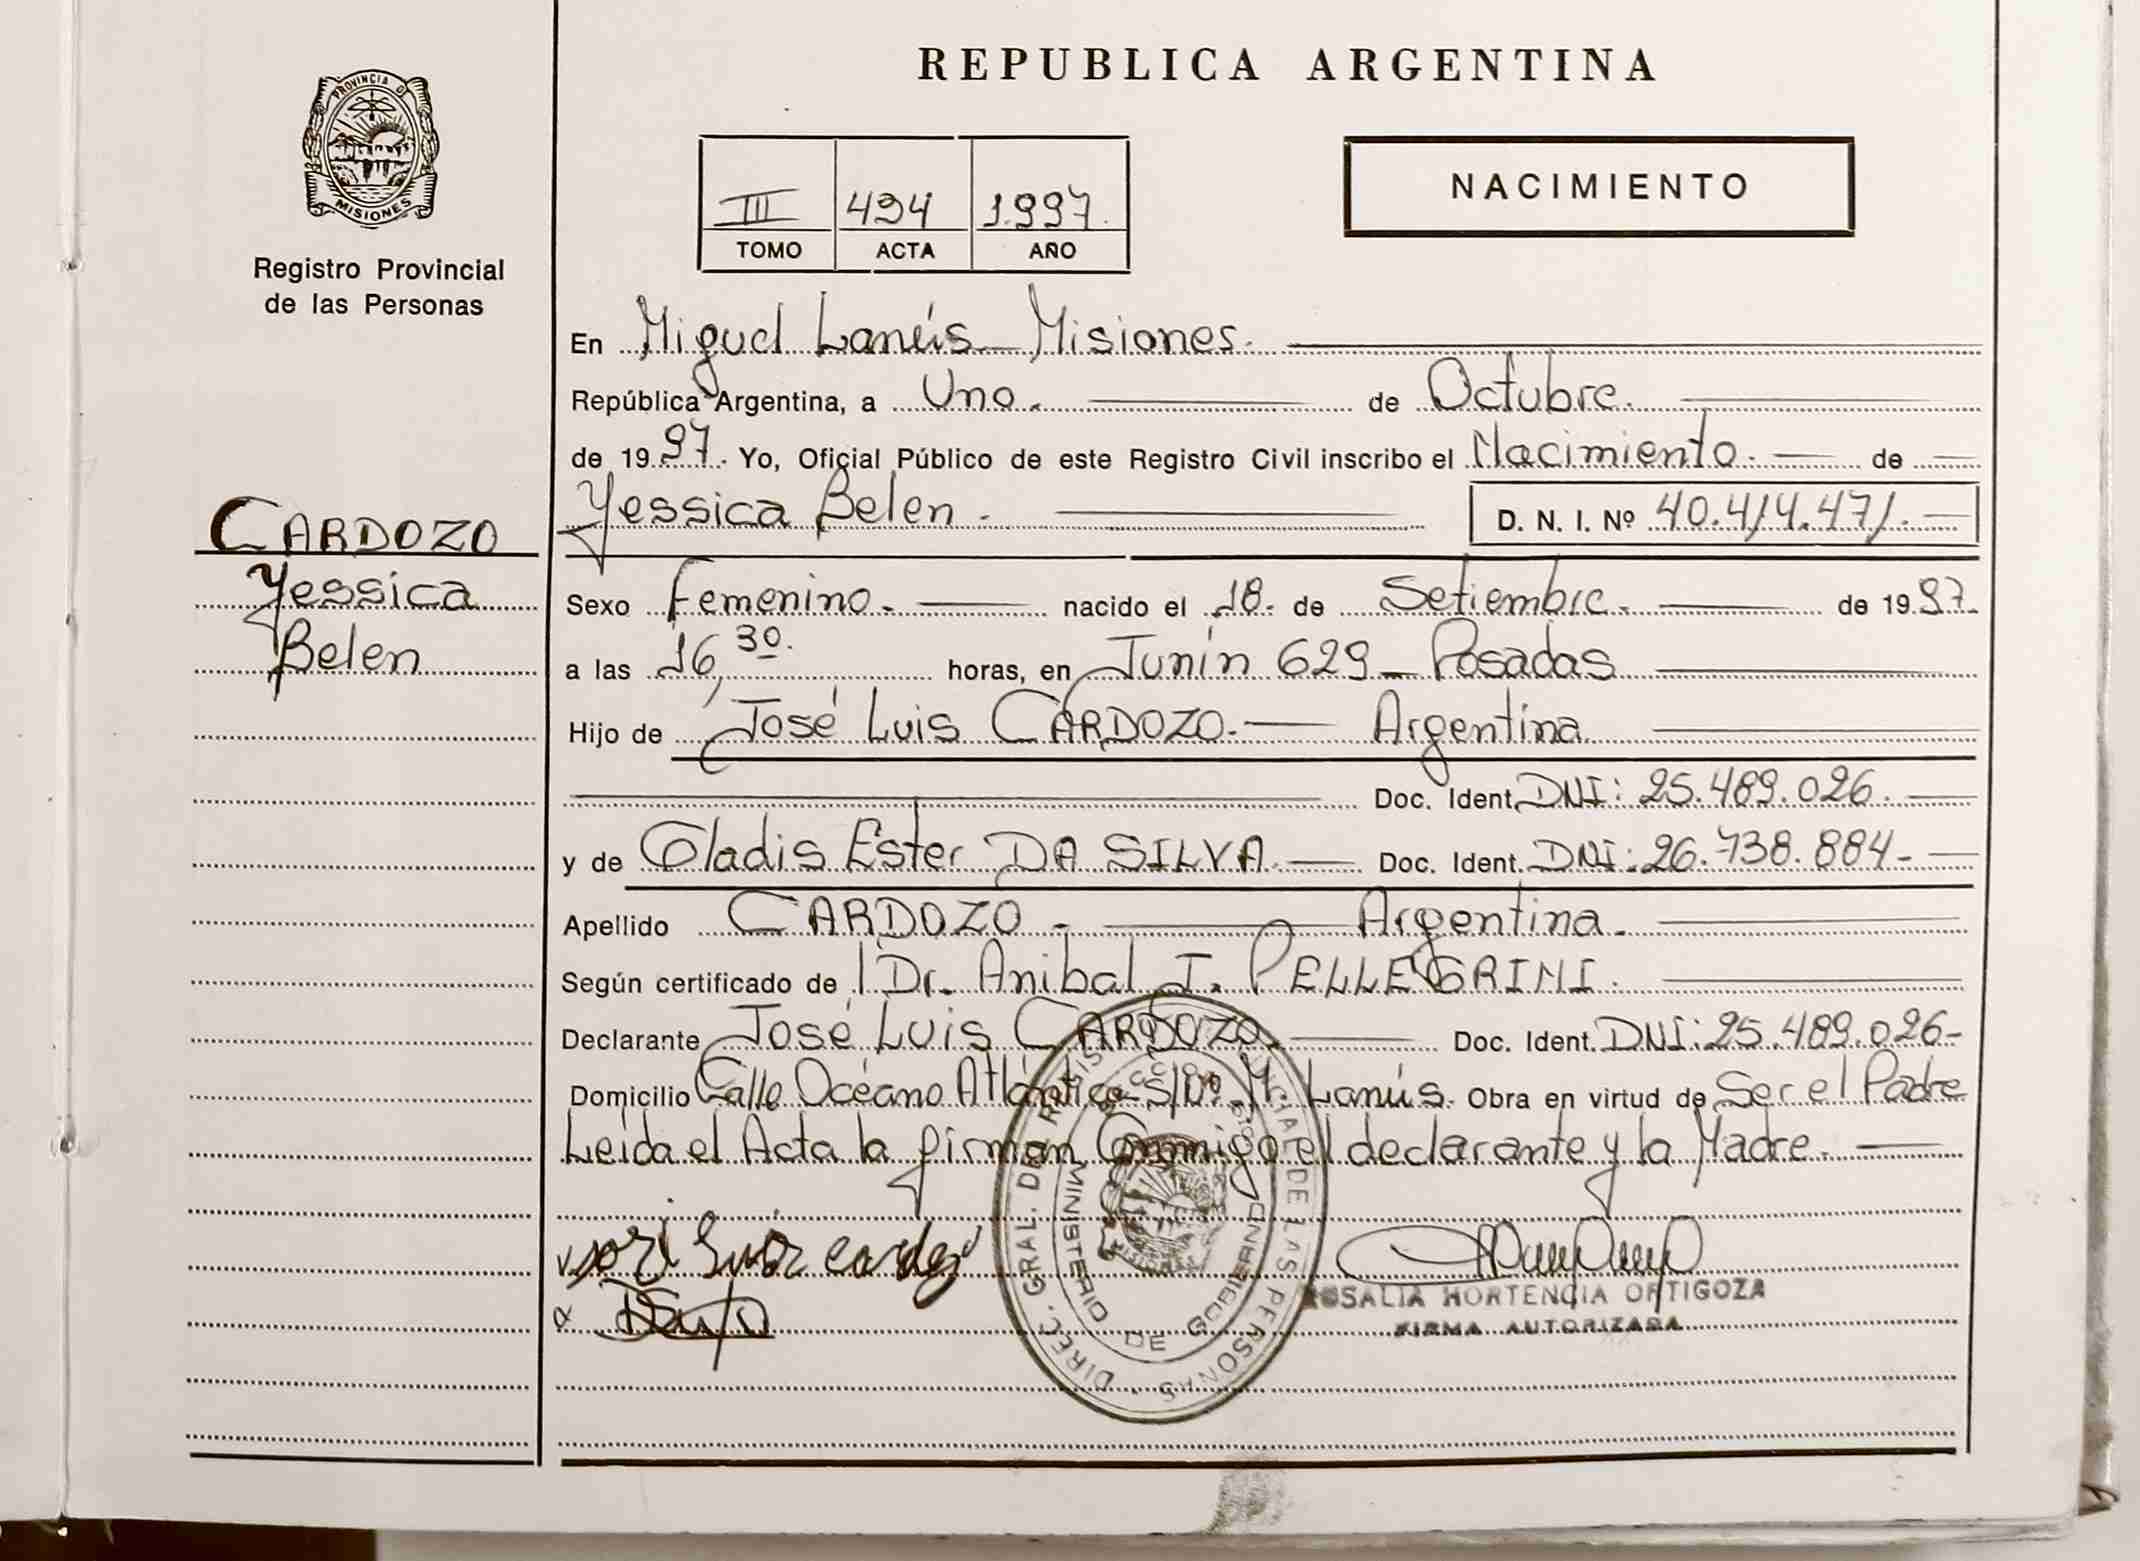 REPUBLICA ARGENTINA
PROVINCIA DE
MISIONES
Registro Provincial
de las Personas
III 494 1.997.
TOMO ACTA AÑO
NACIMIENTO
En Miguel Lanús - Misiones.
República Argentina, a Uno. de Octubre.
de 1997. Yo, Oficial Público de este Registro Civil inscribo el Nacimiento. de
Yessica Belen. D. N. I. Nº 40.414.471.
CARDOZO
Yessica
Belen
Sexo Femenino. nacido el 18. de Setiembre. de 1997.
a las 16,30. horas, en Junín 629 - Posadas
Hijo de José Luis CARDOZO. Argentina
Doc. Ident. DNI: 25.489.026.
y de Gladis Ester DA SILVA. Doc. Ident. DNI: 26.738.884-
Apellido CARDOZO - Argentina.
Según certificado de Dr. Anibal J. PELLEGRINI.
Declarante José Luis CARDOZO. Doc. Ident. DNI: 25.489.026-
Domicilio Calle Océano Atlántico S/Nº. M. Lanús. Obra en virtud de Ser el Padre
Leida el Acta la firman Conmigo el declarante y la Madre.
ROSALIA HORTENCIA ORTIGOZA
FIRMA AUTORIZADA
DIREC. GRAL. DE DE LAS PERSONAS
MINISTERIO DE GOBIERNO